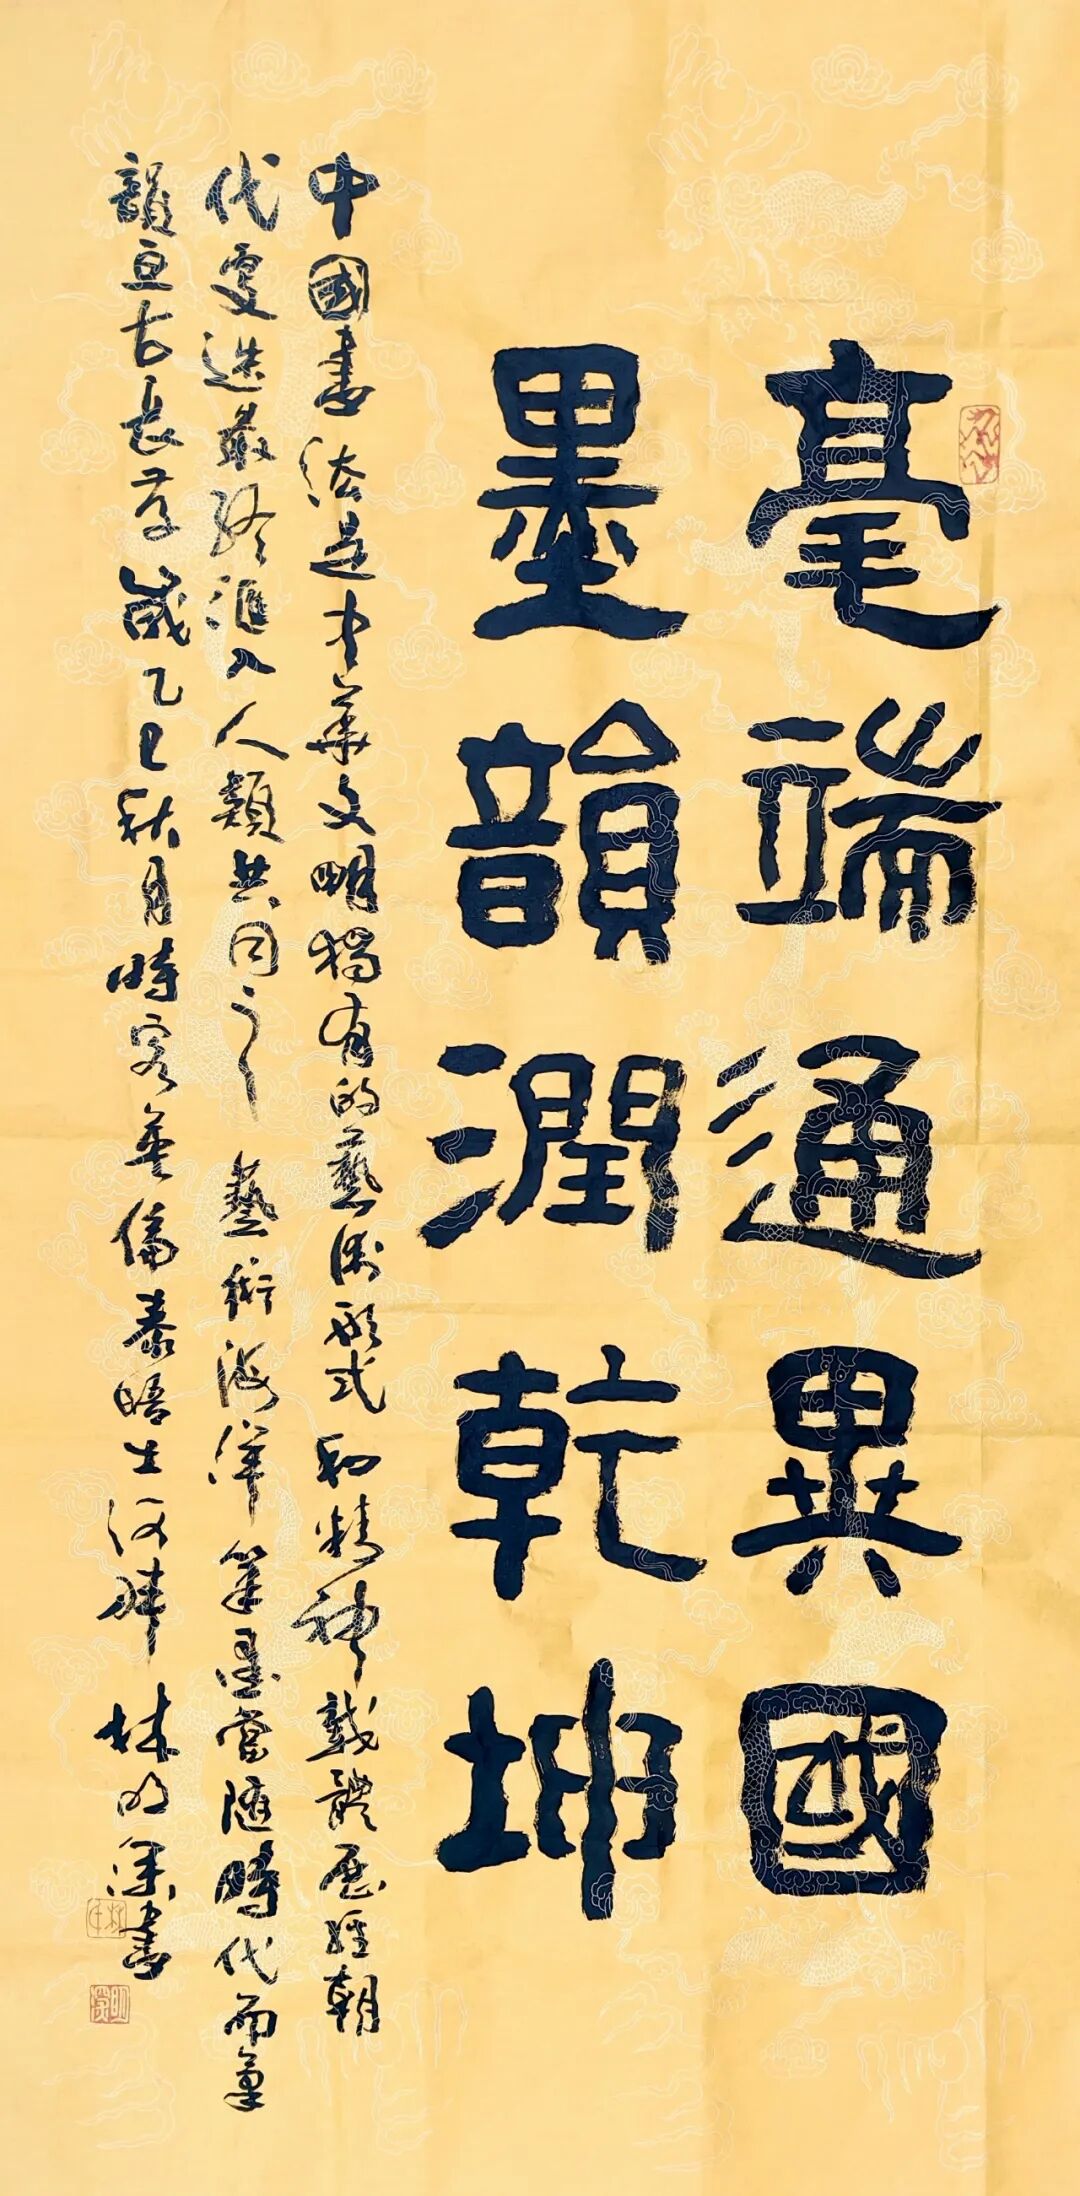 毫端通異國
墨韻潤乾坤
中國書法是中華文明獨有的藝術形式和精神載體歷經朝
代更迭最終匯入人類共同之藝術海洋筆墨當隨時代而氣
韻亘古長存歲乙巳秋月時客
林明深書